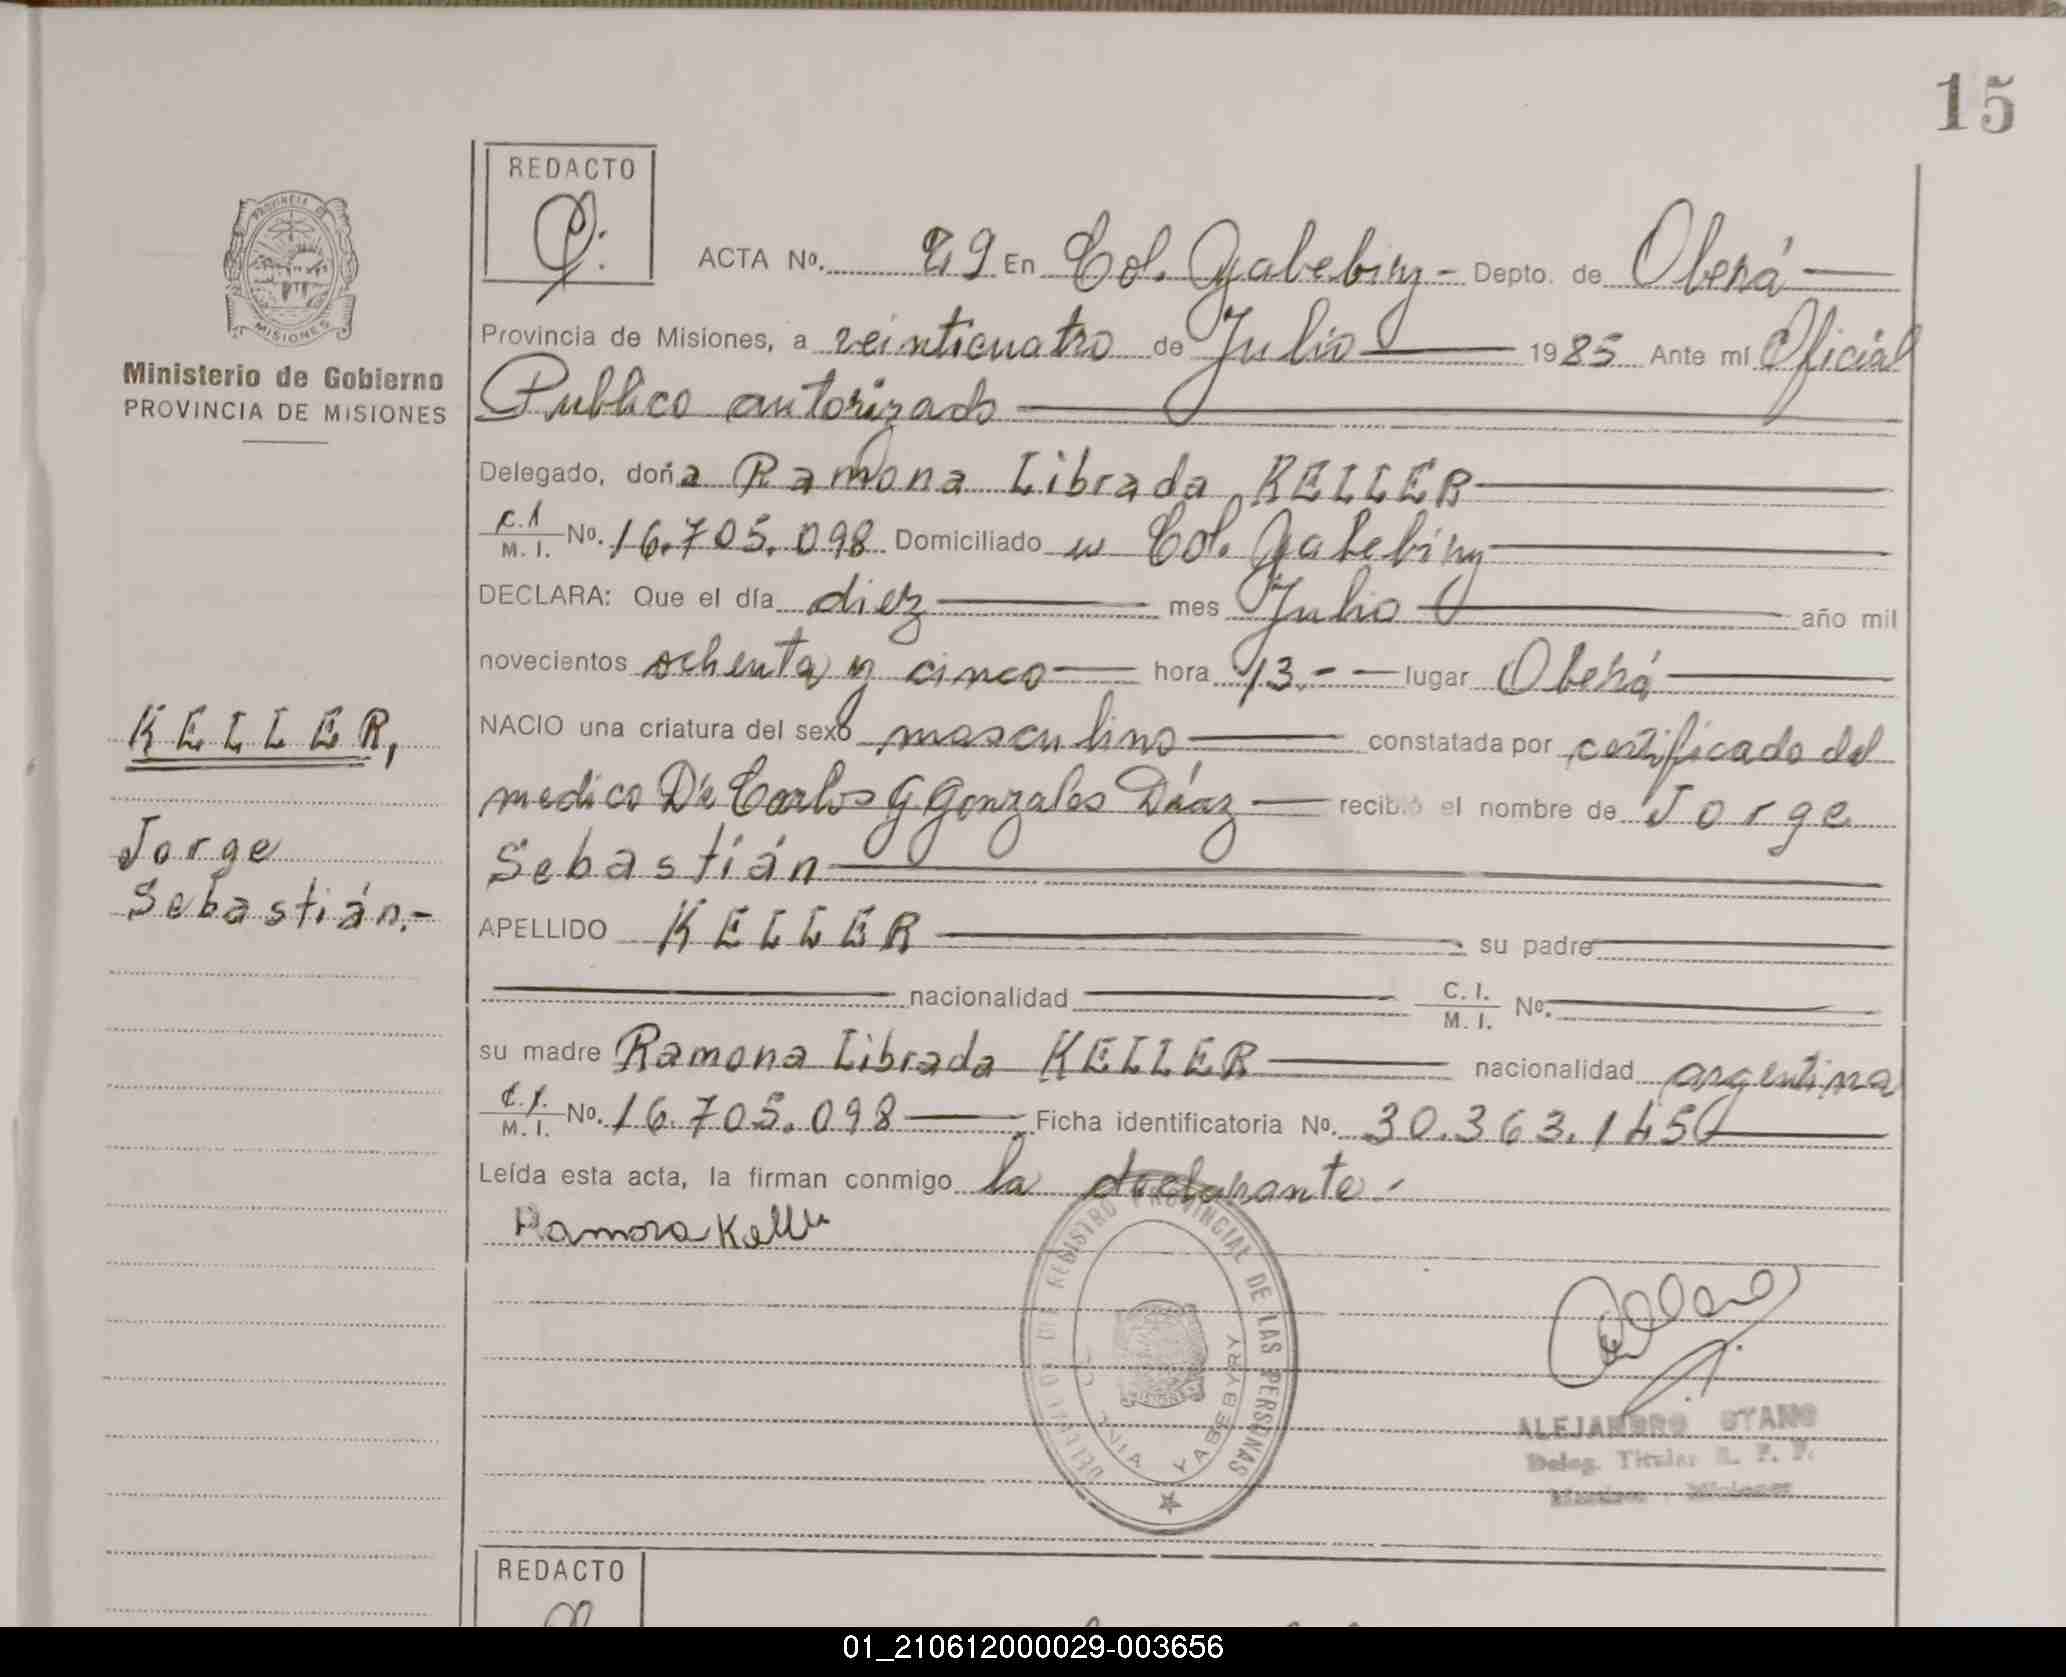 15
REDACTO
PROVINCIA DE
MISIONES
Ministerio de Gobierno
PROVINCIA DE MISIONES
ACTA Nº. 29 En Col. Yabebiry - Depto. de Oberá
Provincia de Misiones, a veinticuatro de Julio 1985 Ante mí Oficial
Publico autorizado
Delegado, doña Ramona Librada KELLER
C.I
M. I. Nº. 16.705.098 Domiciliado en Col. Yabebiry
DECLARA: Que el día diez mes Julio año mil
novecientos ochenta y cinco hora 13.- lugar Oberá
KELLER,
NACIO una criatura del sexo masculino constatada por certificado del
medico Dr Carlos G Gonzales Díaz recibió el nombre de Jorge
Jorge
Sebastián
Sebastián.-
APELLIDO KELLER su padre
nacionalidad C. I.
M. I. Nº.
su madre Ramona Librada KELLER nacionalidad argentina
C.I.
M. I. Nº. 16.705.098 Ficha identificatoria Nº. 30.363.145
Leída esta acta, la firman conmigo la declarante.-
Ramona Keller
REGISTRO PROVINCIAL DE LAS PERSONAS
YABEBYRY
ALEJANDRO STANG
Deleg. Titular R. P. P.
Misiones
REDACTO
01_210612000029-003656